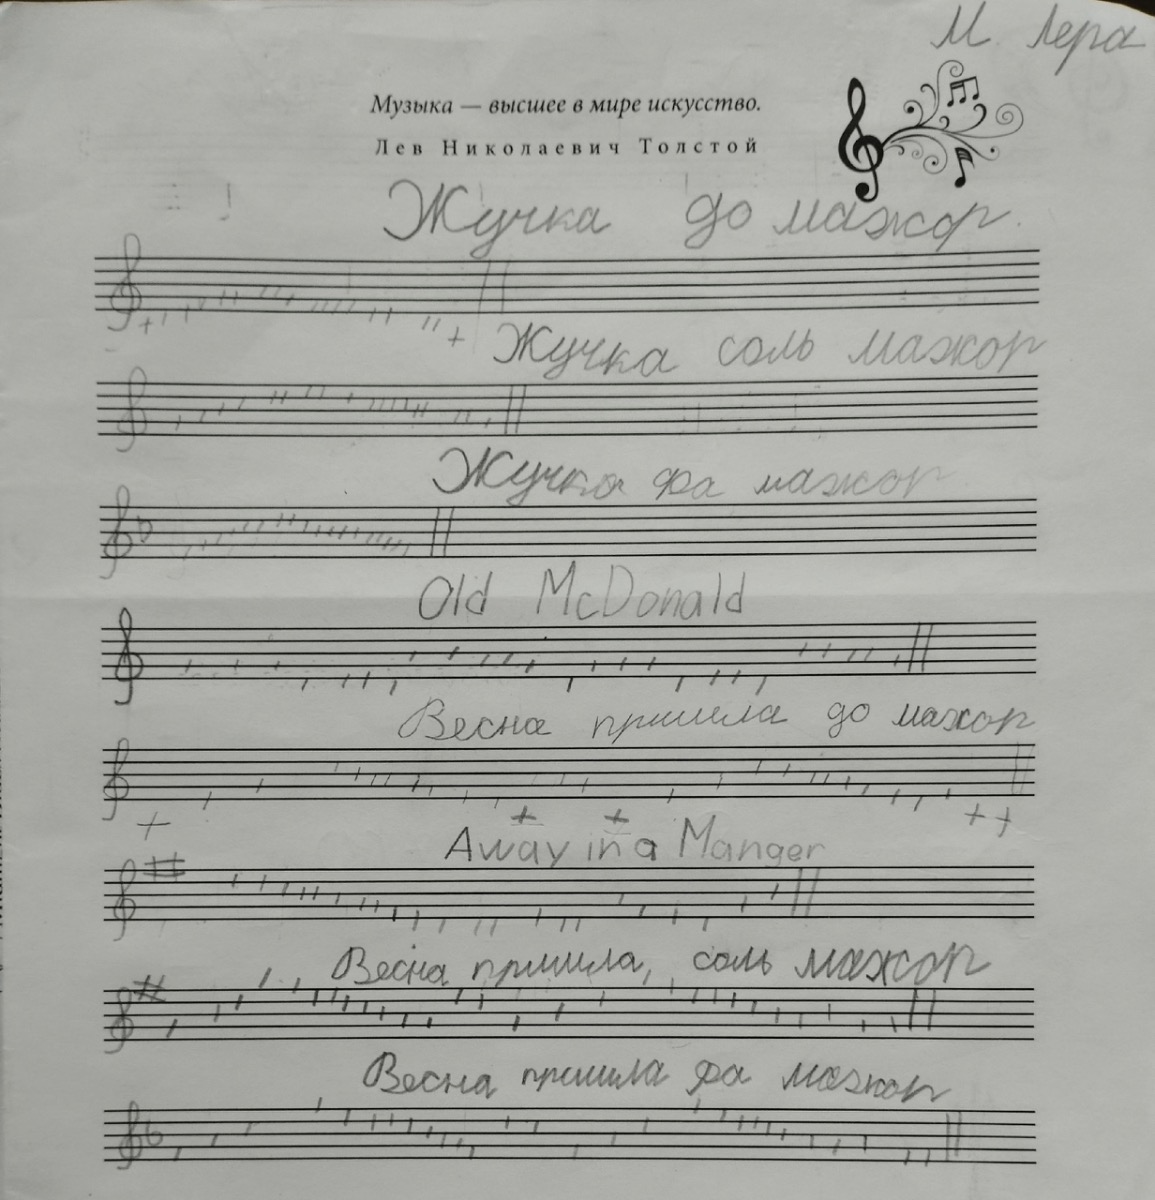 М. Лера
Музыка — высшее в мире искусство.
Лев Николаевич Толстой
Жучка до мажор.
Жучка соль мажор
Жучка фа мажор
Old McDonald
Весна пришла до мажор
Away in a Manger
Весна пришла, соль мажор
Весна пришла фа мажор